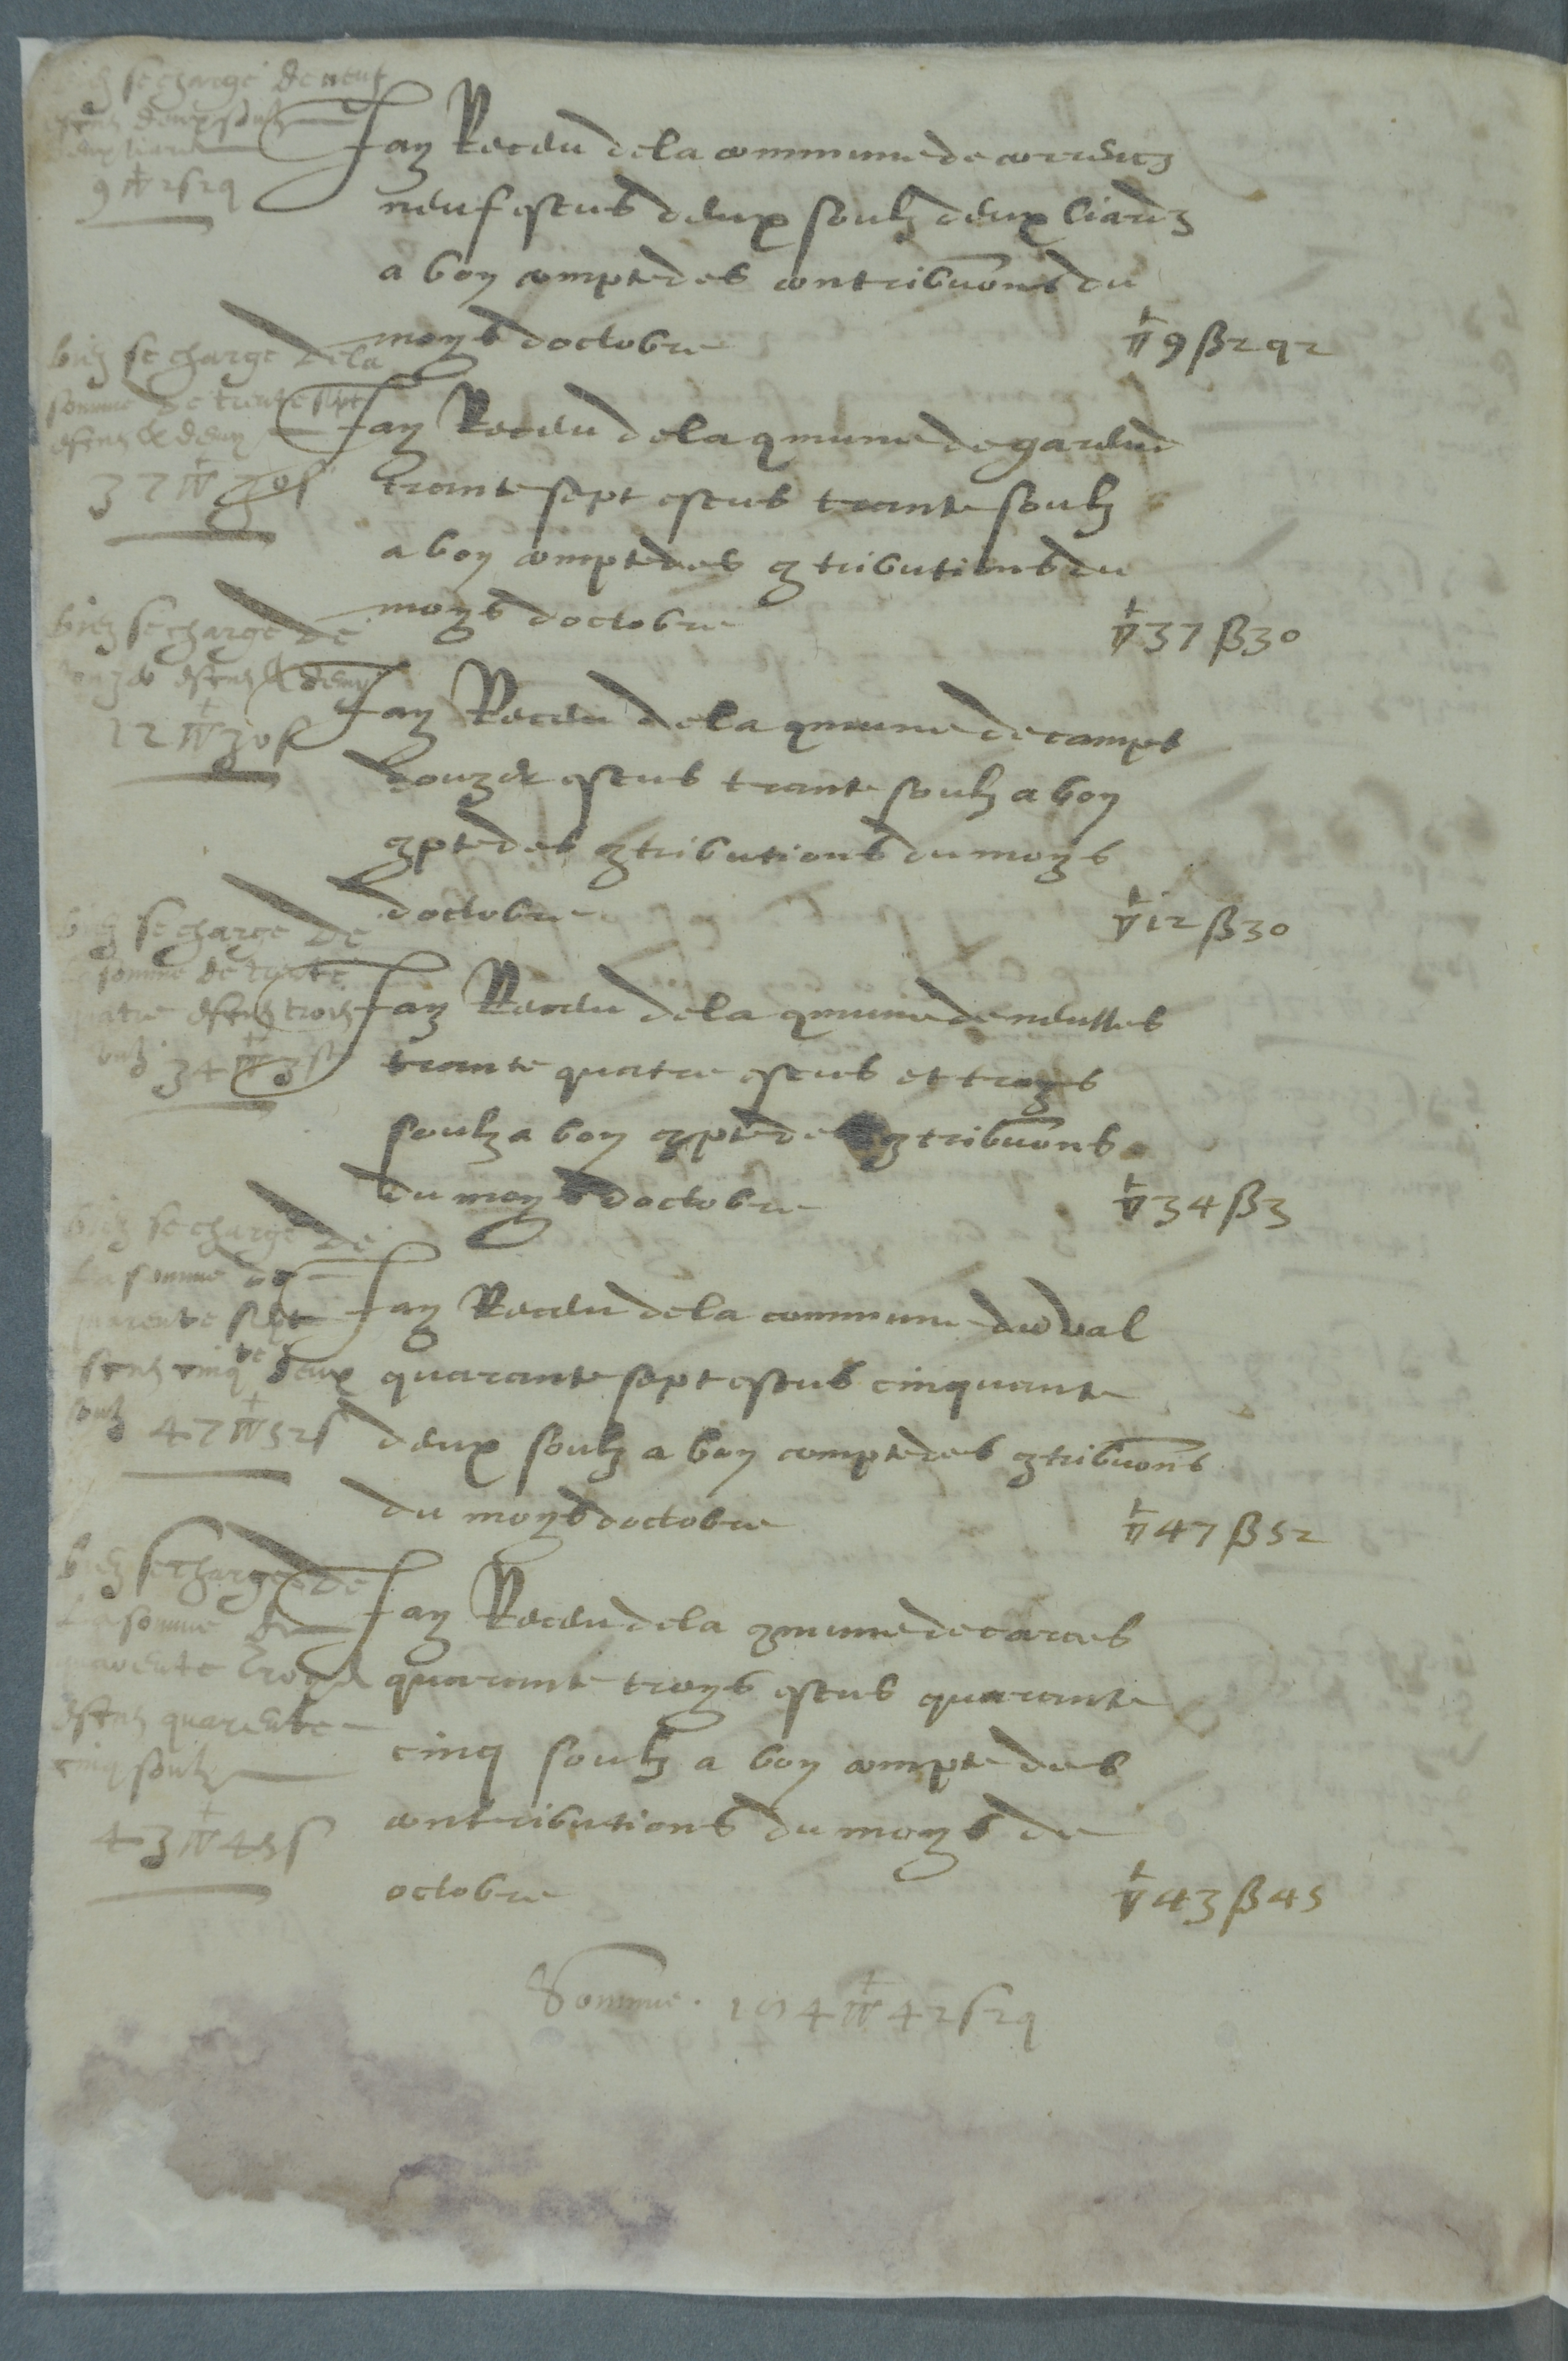 bien se charge de neuf
escus deux soulz
deux liards
9 ▽ 2 s 2 q
Jay Receu de la commune de correns
neuf escus deux soulz deux liardz
a bon compte des contribuons du
moys doctobre ▽ 9 ß 2 q 2
bien se charge de la
somme de trente sept
escus & demy
37 ▽ 30 s
Jay Receu de la qmune de gareud
trante sept escus trante soulz
a bon compte des 9tributions du
moys doctobre ▽ 37 ß 30
bien se charge de
douze escus & demy
12 ▽ 30 s
Jay Receu de la qmune de camps
douze escus trante soulz a bon
9pte des 9tributions du moys
doctobre ▽ 12 ß 30
bien se charge de
la somme de trente
quatre escus troys
soulz 34 ▽ 3 s
Jay Receu de la qmune de neulles
trante quatre escus et troys
soulz a bon 9pte des 9tribuons
du moys doctobre ▽ 34 ß 3
bien se charge de
la somme de
quarente sept
escus cinqte deux
soulz 47 ▽ 52 s
Jay Receu de la commune du val
quarante sept escus cinquante
deux soulz a bon compte des 9tribuons
du moys doctobre ▽ 47 ß 52
bien se charge de
la somme de
quarente troys
escus quarente
cinq soulz
43 ▽ 45 s
Jay Receu de la 9mune de carces
quarante troys escus quarante
cinq soulz a bon compte des
contributions du moys de
octobre ▽ 43 ß 45
Somme . 184 ▽ 42 s 2 q